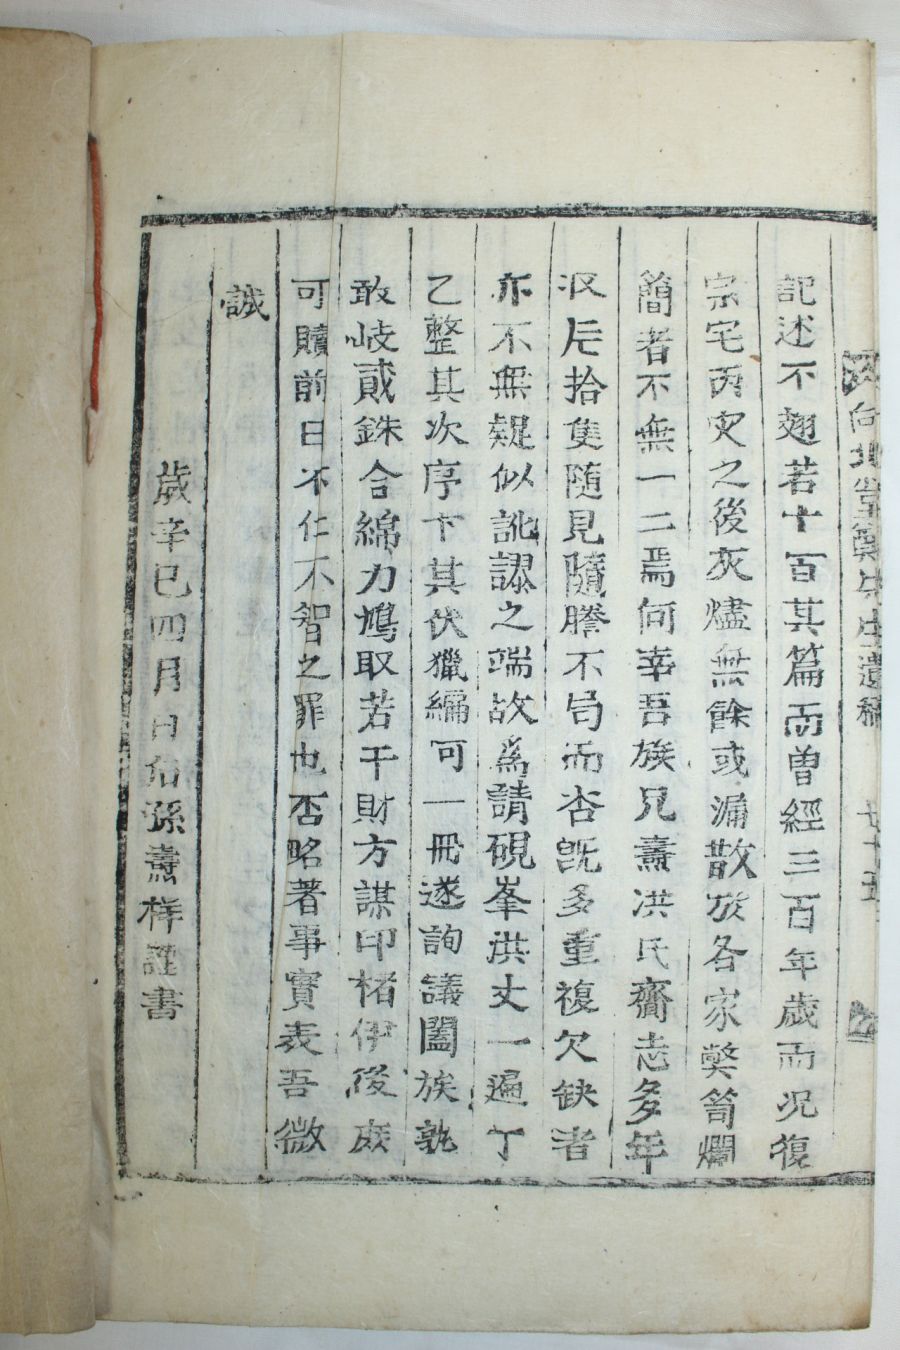 向北堂 先生遺稿
記述不翅若十百其篇而曾經三百年歲而况復
宗宅丙灾之後灰燼無餘或漏散於各家弊笥爛
簡者不無一二焉何幸吾族兄燾洪氏齎志多年
汲々拾隻隨見隨謄不苟而杏旣多重複欠缺者
亦不無疑似訛謬之端故爲請硯峯洪丈一遍丁
乙整其次序卞其伏獵編可一冊遂詢議闔族孰
敢岐貳銖合綿力鳩取若干財方謀印楮伊後庶
可贖前日不仁不智之罪也否略著事實表吾微
誠
歲辛巳四月日后孫燾祥謹書